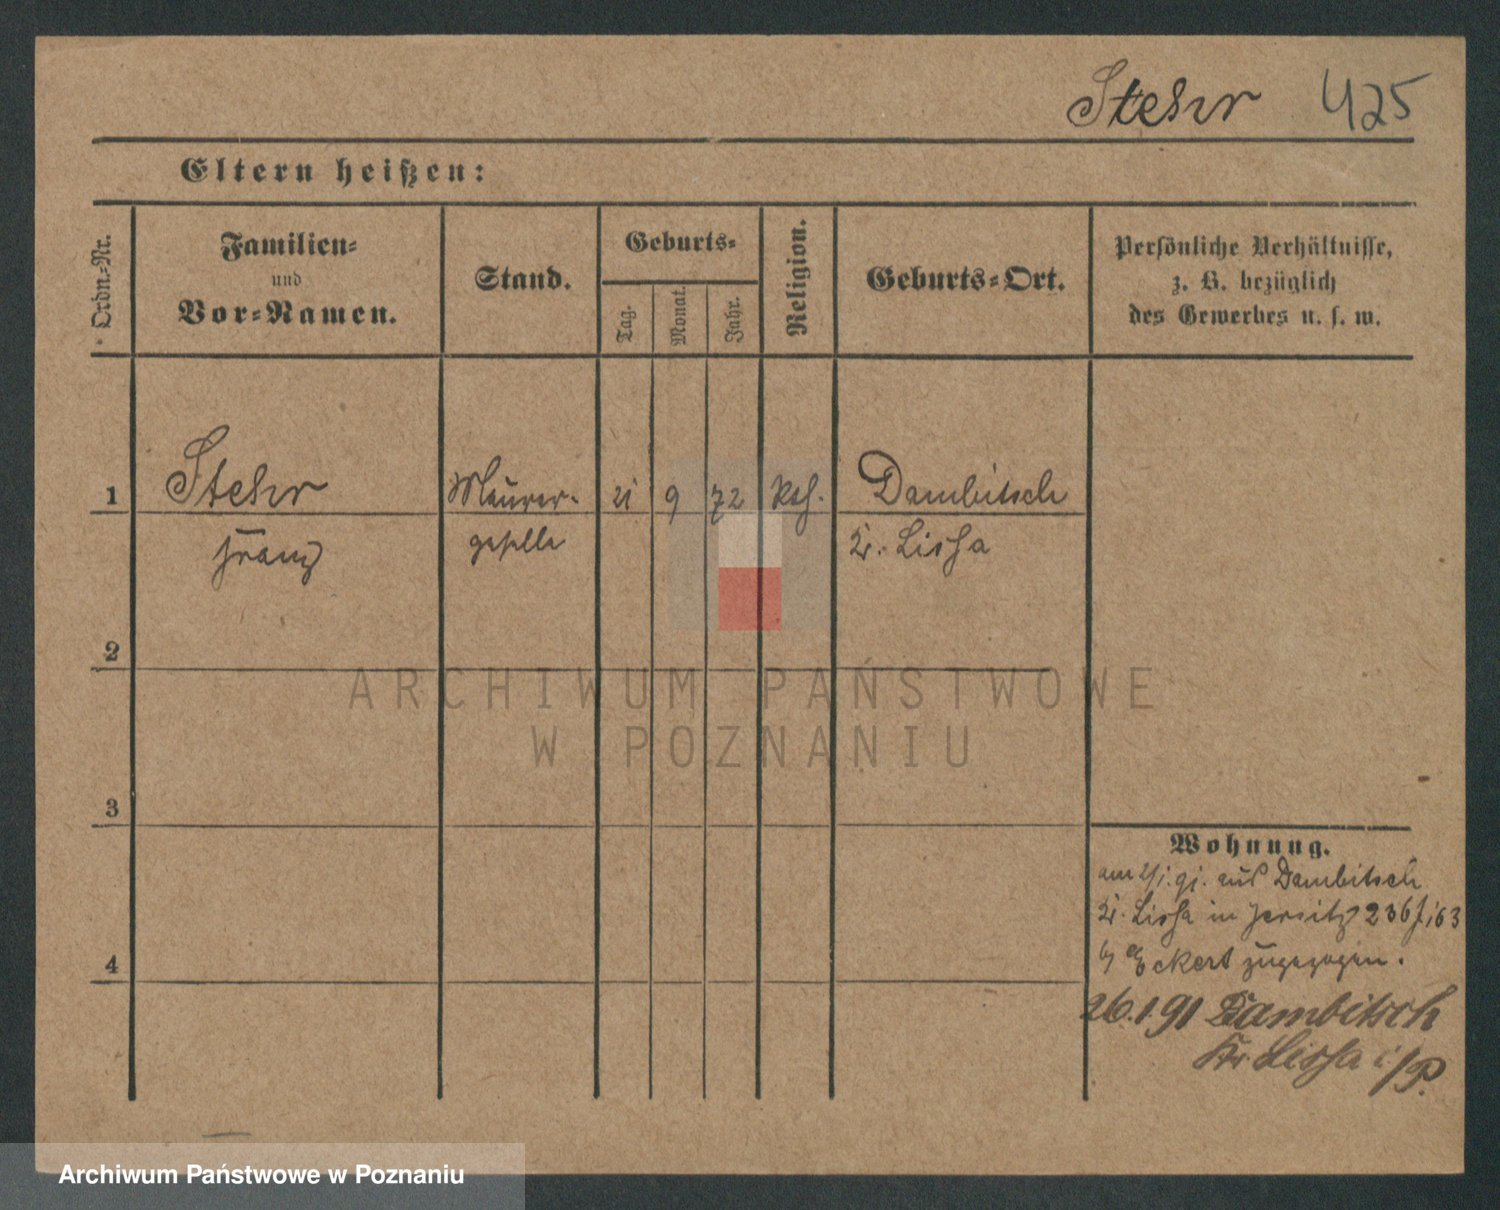 Stehr 425
Eltern heißen:
Ordn.-Nr.
Familien- und Vor-Namen.
Stand.
Geburts-
Tag.
Monat.
Jahr.
Religion.
Geburts-Ort.
Persönliche Verhältnisse,
z. B. bezüglich
des Gewerbes u. s. w.
1 Stehr Maurer- 21 9 72 Kth. Dambitsch
Franz geselle Kr. Lissa
2
ARCHIWUM PAŃSTWOWE
W POZNANIU
3
Wohnung.
am 2/1. 91. aus Dambitsch
Kr. Lissa in Jersitz 236
Eckert zugezogen.
4
26.1.91 Dambitsch
Kr. Lissa i/P.
Archiwum Państwowe w Poznaniu